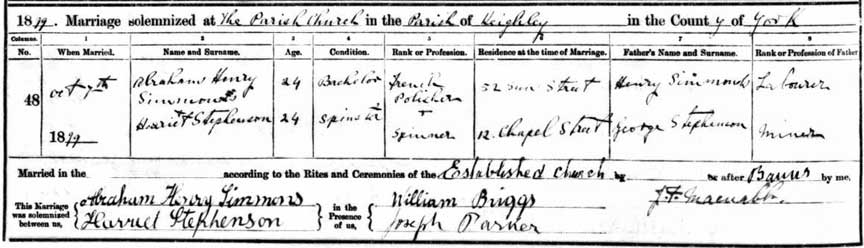 1899. Marriage solemnized at The Parish Church in the Parish of Keighley in the County of York
Columns. 1 2 3 4 5 6 7 8
No. When Married. Name and Surname. Age. Condition. Rank or Profession. Residence at the time of Marriage. Father's Name and Surname. Rank or Profession of Father
48 Oct 7th Abraham Henry Simmonds 24 Bachelor French Polisher 52 Sun Street Henry Simmonds Labourer
1899 Harriet Stephenson 24 Spinster Spinner 12 Chapel Street George Stephenson Miner
Married in the according to the Rites and Ceremonies of the Established Church by or after Banns by me,
This Marriage was solemnized between us, Abraham Henry Simmons in the Presence of us, William Briggs
Harriet Stephenson Joseph Parker